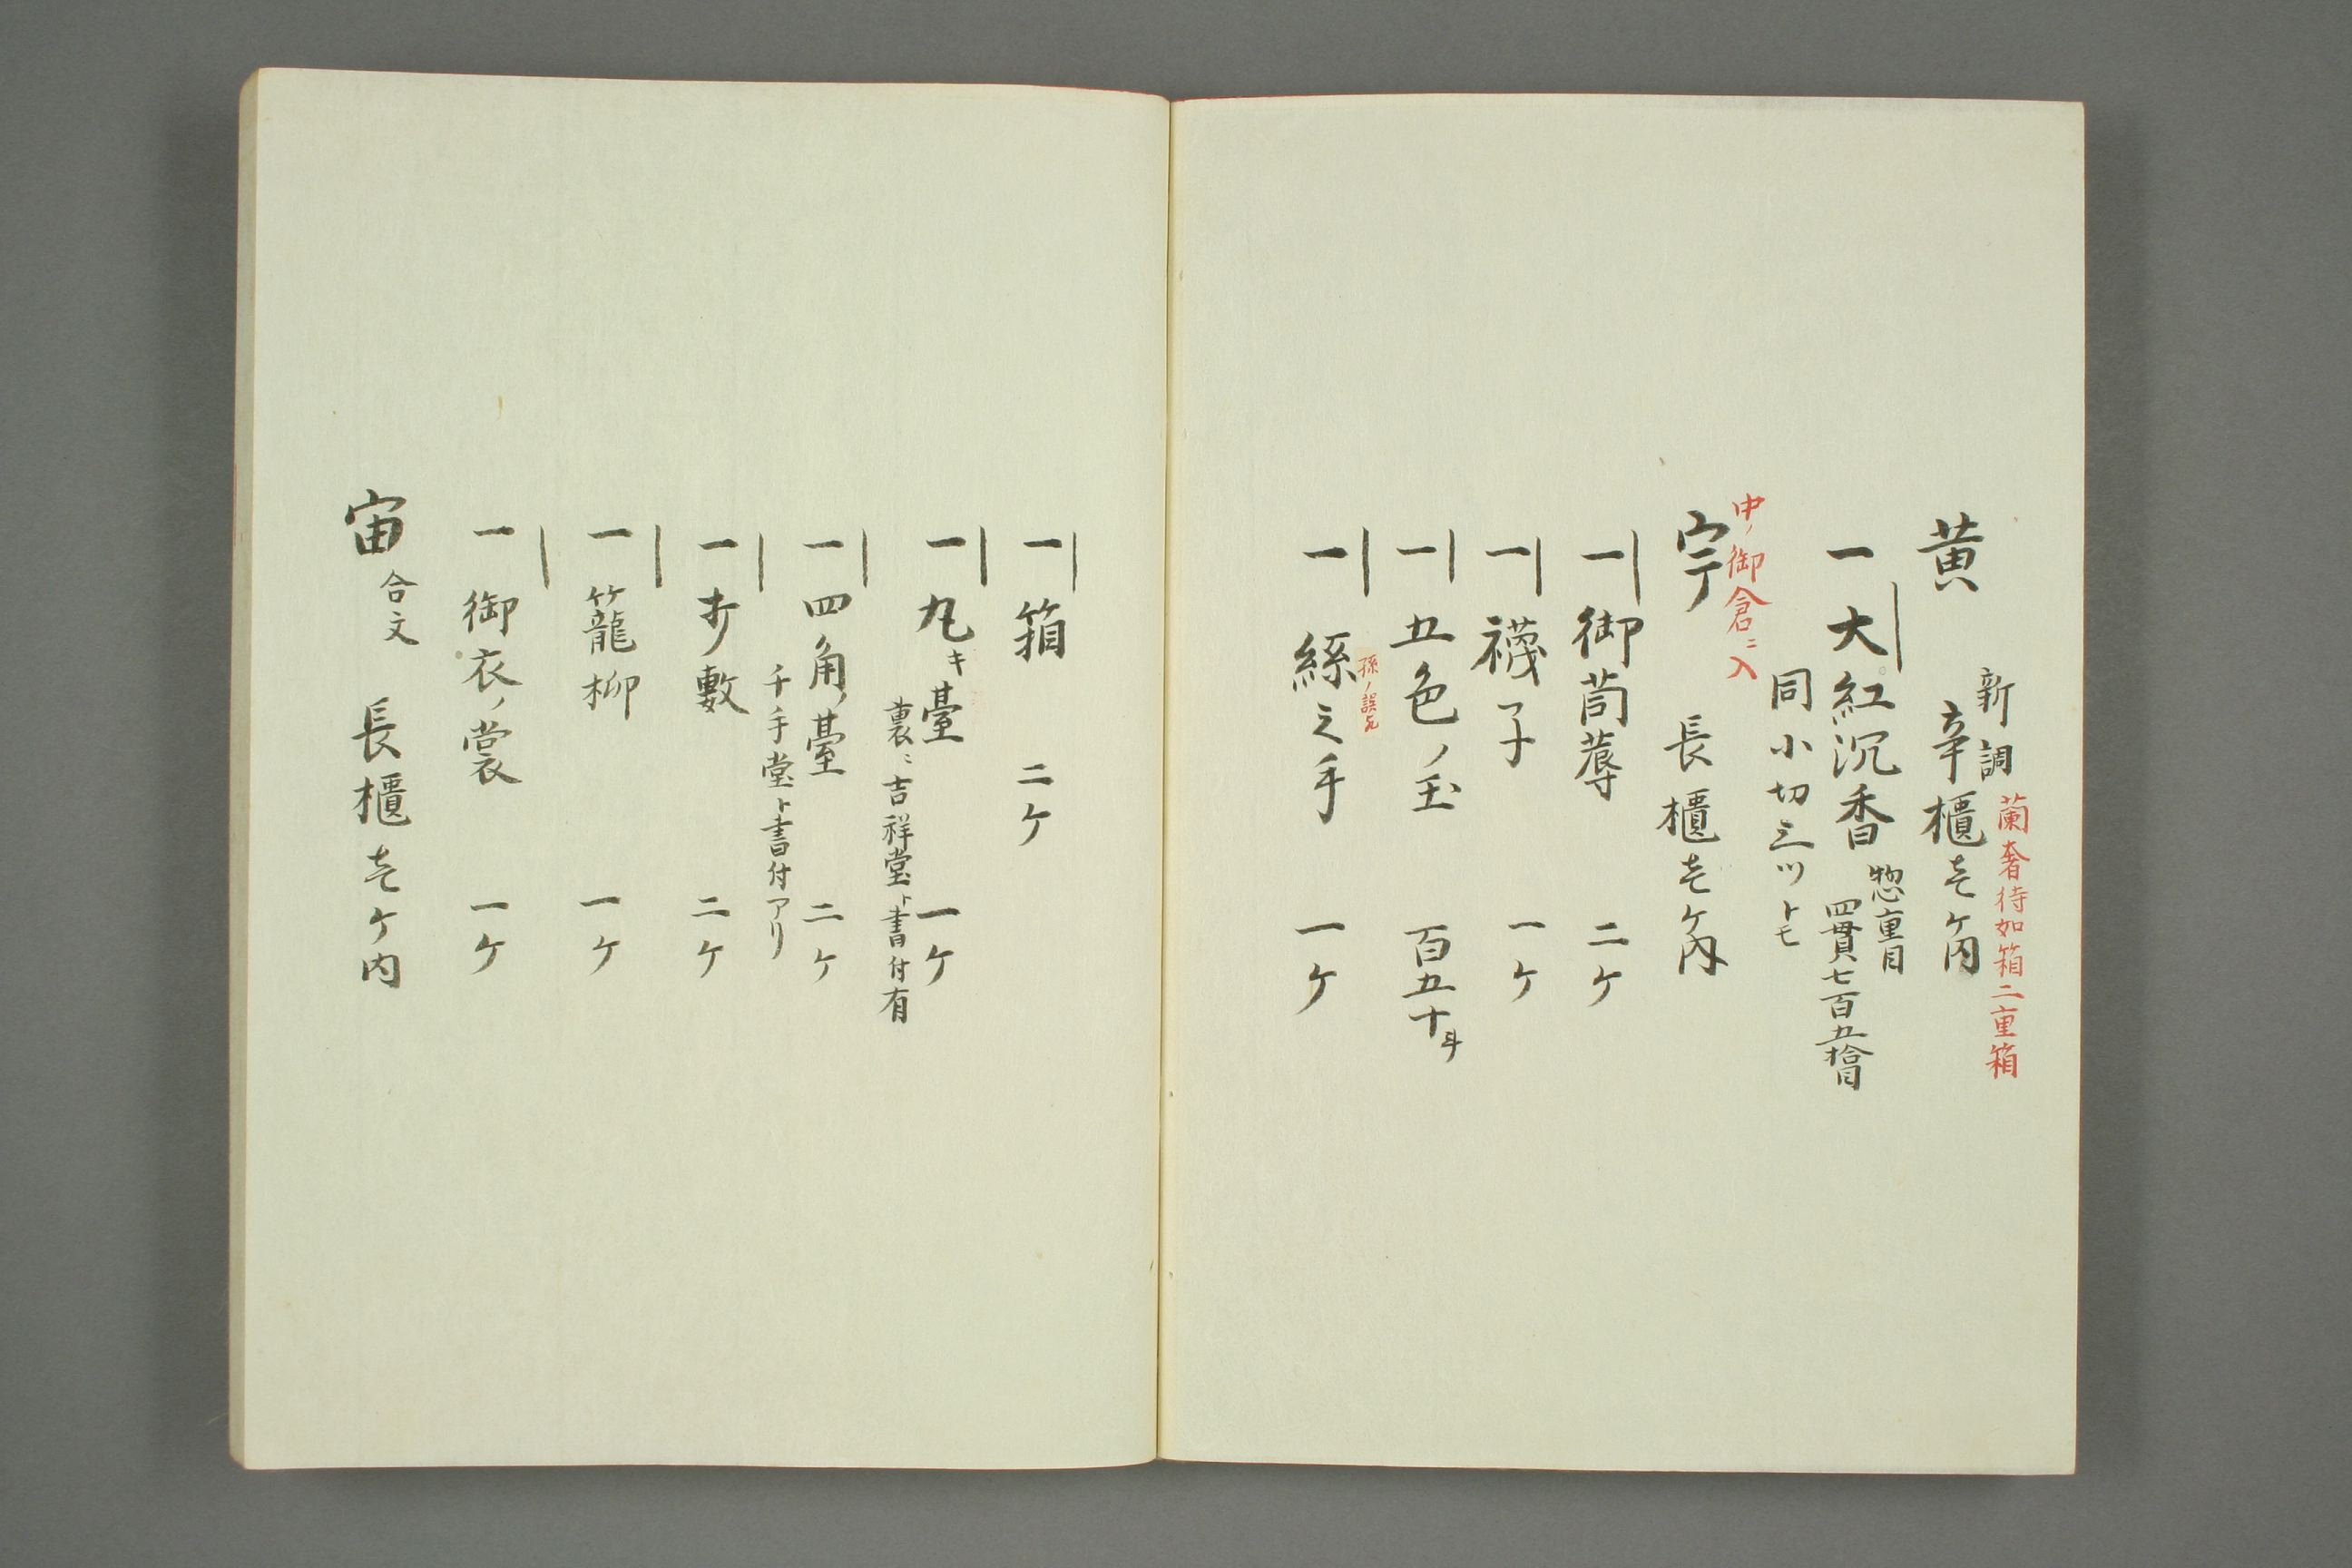 蘭奢待如箱二重箱
新調
黄 辛櫃壱ケ内
一 大紅沉香 惣重目
四貫七百五拾目
同小切三ツトモ
中ノ御倉ニ入
宇 長櫃壱ケ内
一 御茼蓐 二ケ
一 襪子 一ケ
一 五色ノ玉 百五十斗
孫ノ誤乎
一 絲之手 一ケ
一 箱 二ケ
一 丸キ臺 一ケ
裏ニ吉祥堂ト書付有
一 四角ノ臺 二ケ
千手堂ト書付アリ
一 折敷 二ケ
一 籠柳 一ケ
一 御衣ノ裳 一ケ
宙 合文 長櫃壱ケ内